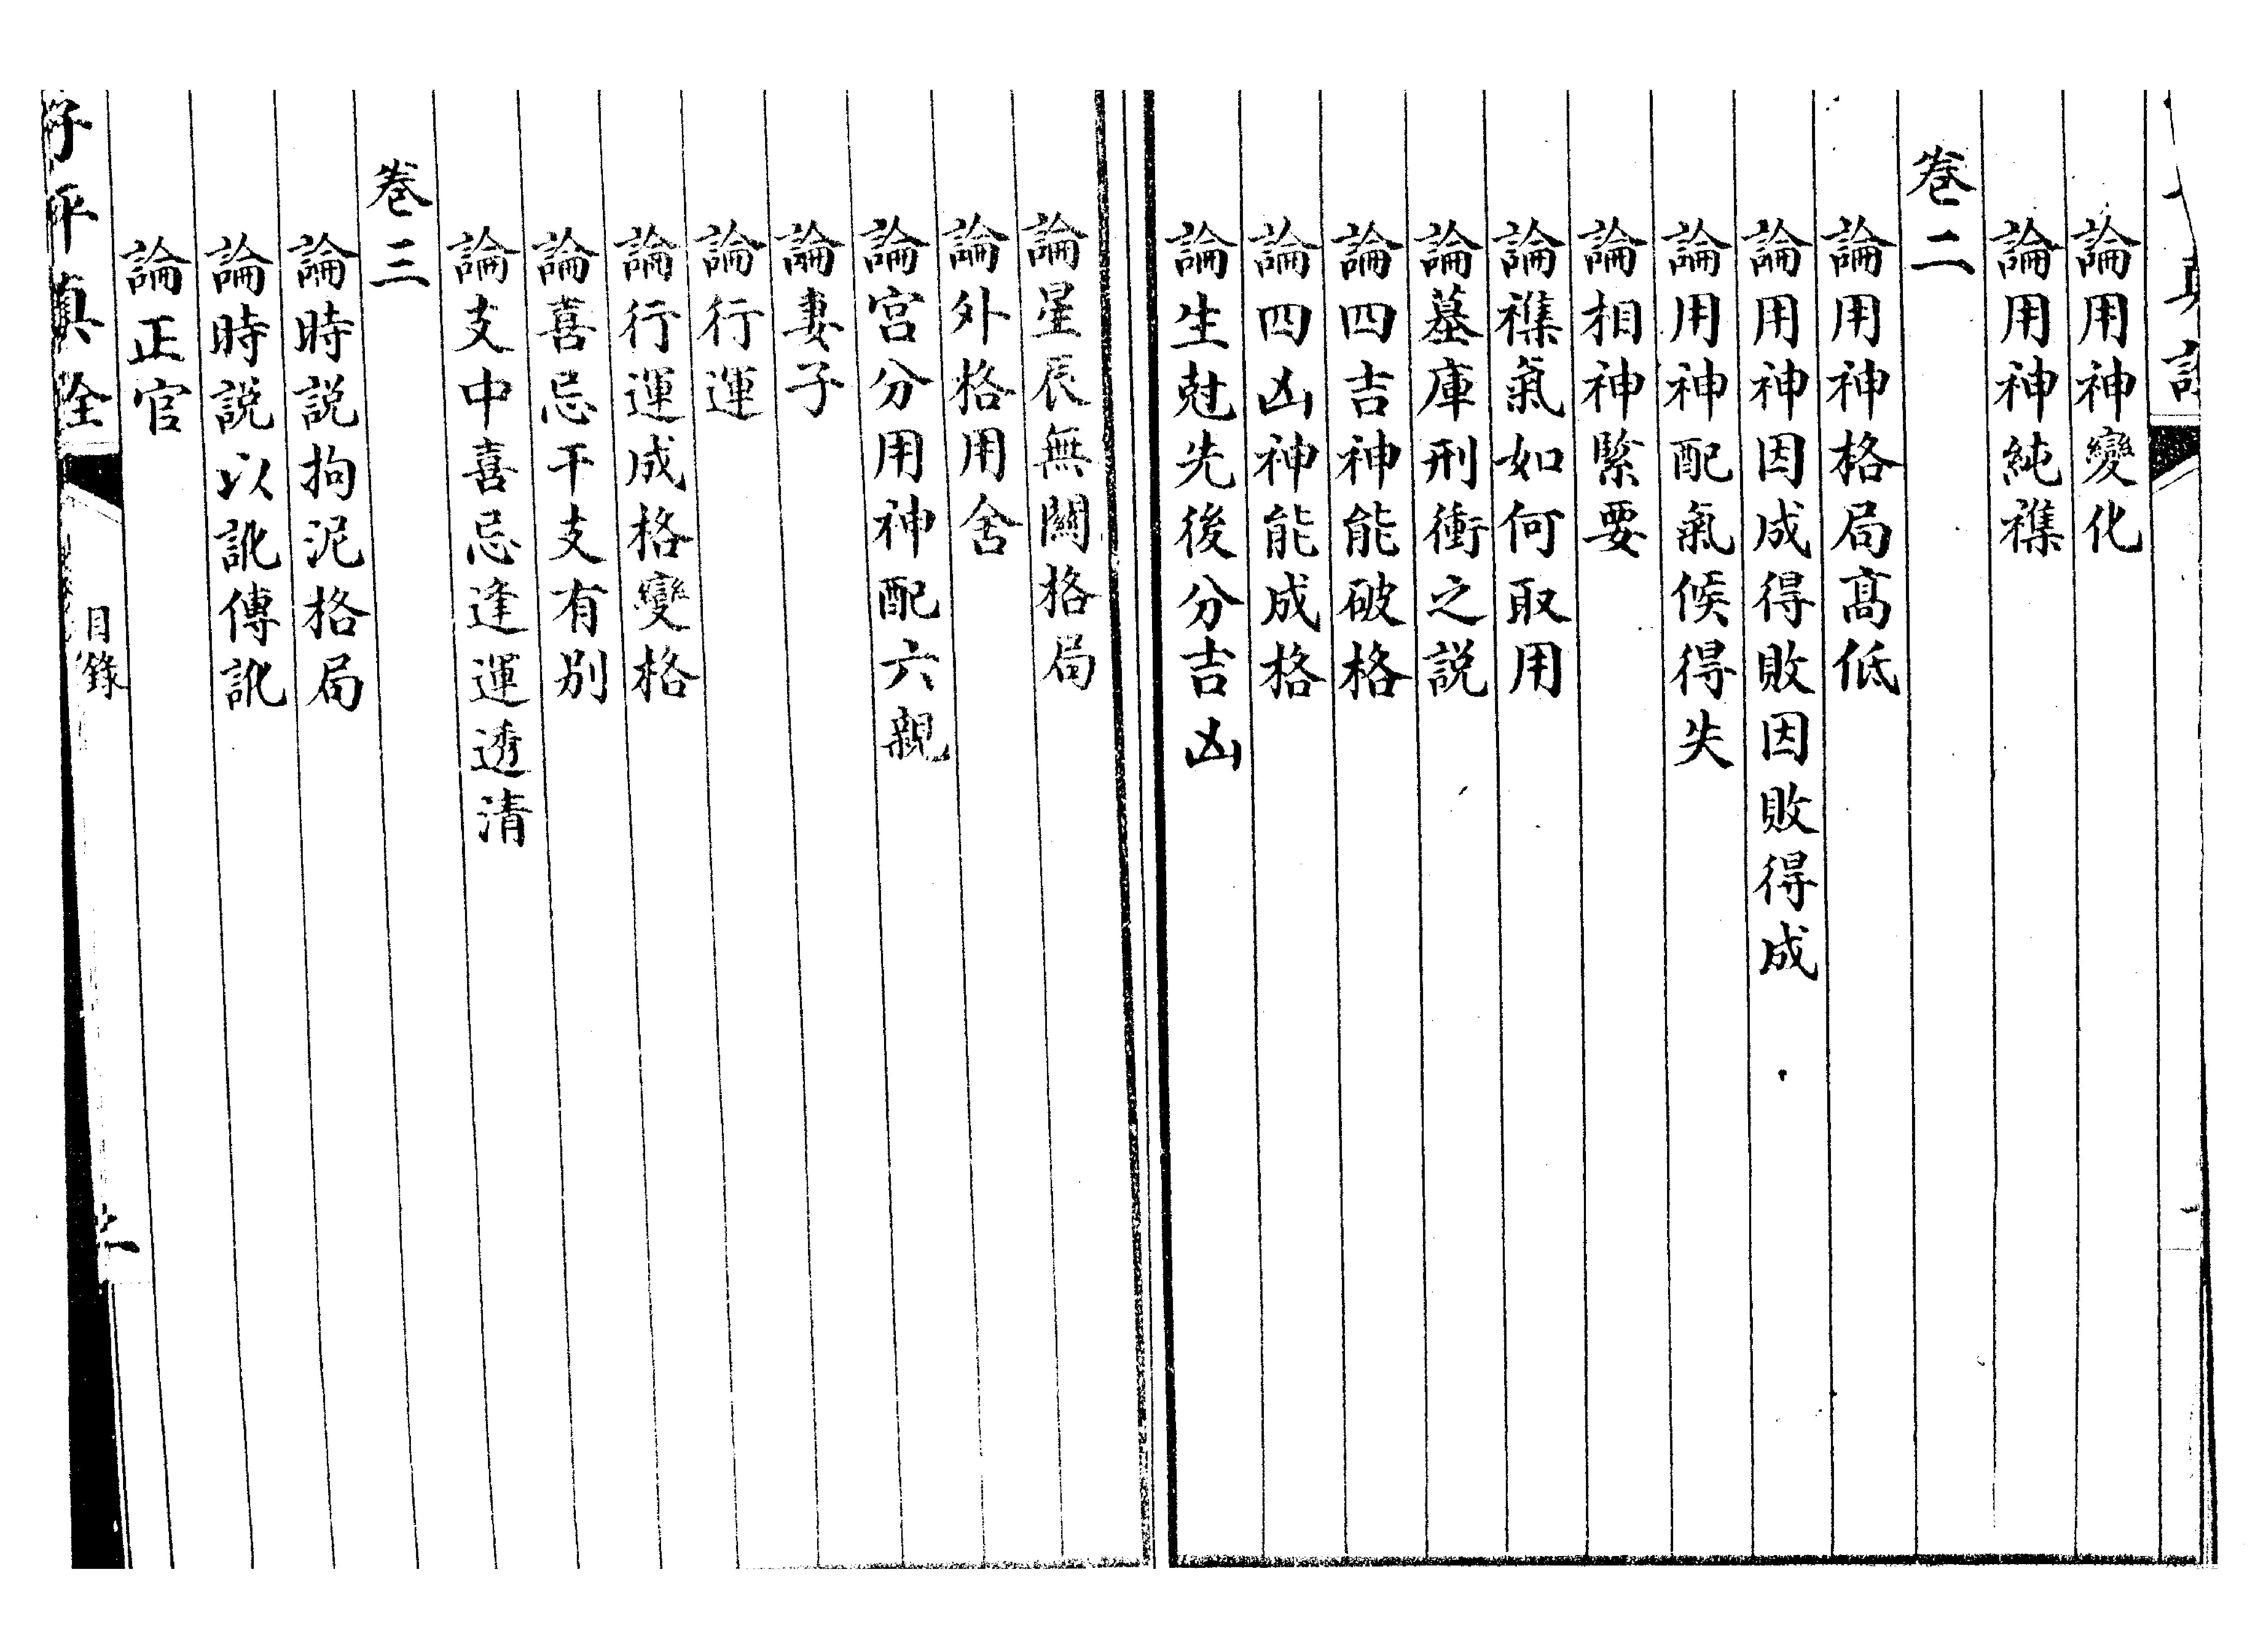 真詮
論用神變化
論用神純襍
卷二
論用神格局髙低
論用神因成得敗因敗得成
論用神配氣候得失
論相神緊要
論襍氣如何取用
論墓庫刑衝之説
論四吉神能破格
論四凶神能成格
論生尅先後分吉凶
論星辰無關格局
論外格用舍
論宮分用神配六親
論妻子
論行運
論行運成格變格
論喜忌干支有别
論支中喜忌逢運透清
卷三
論時説拘泥格局
論時説以訛傳訛
論正官
子平真詮
目錄
二